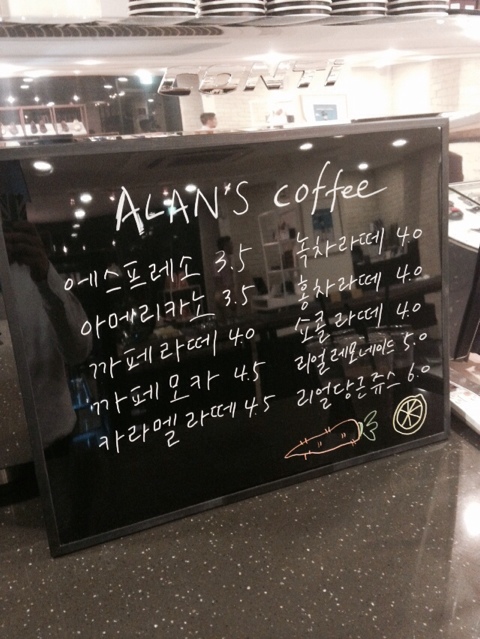 CONTI
ALAN'S coffee
에스프레소 3.5
아메리카노 3.5
까페라떼 4.0
까페모카 4.5
카라멜라떼 4.5
녹차라떼 4.0
홍차라떼 4.0
쇼콜라떼 4.0
리얼레모네이드 5.0
리얼당근쥬스 6.0